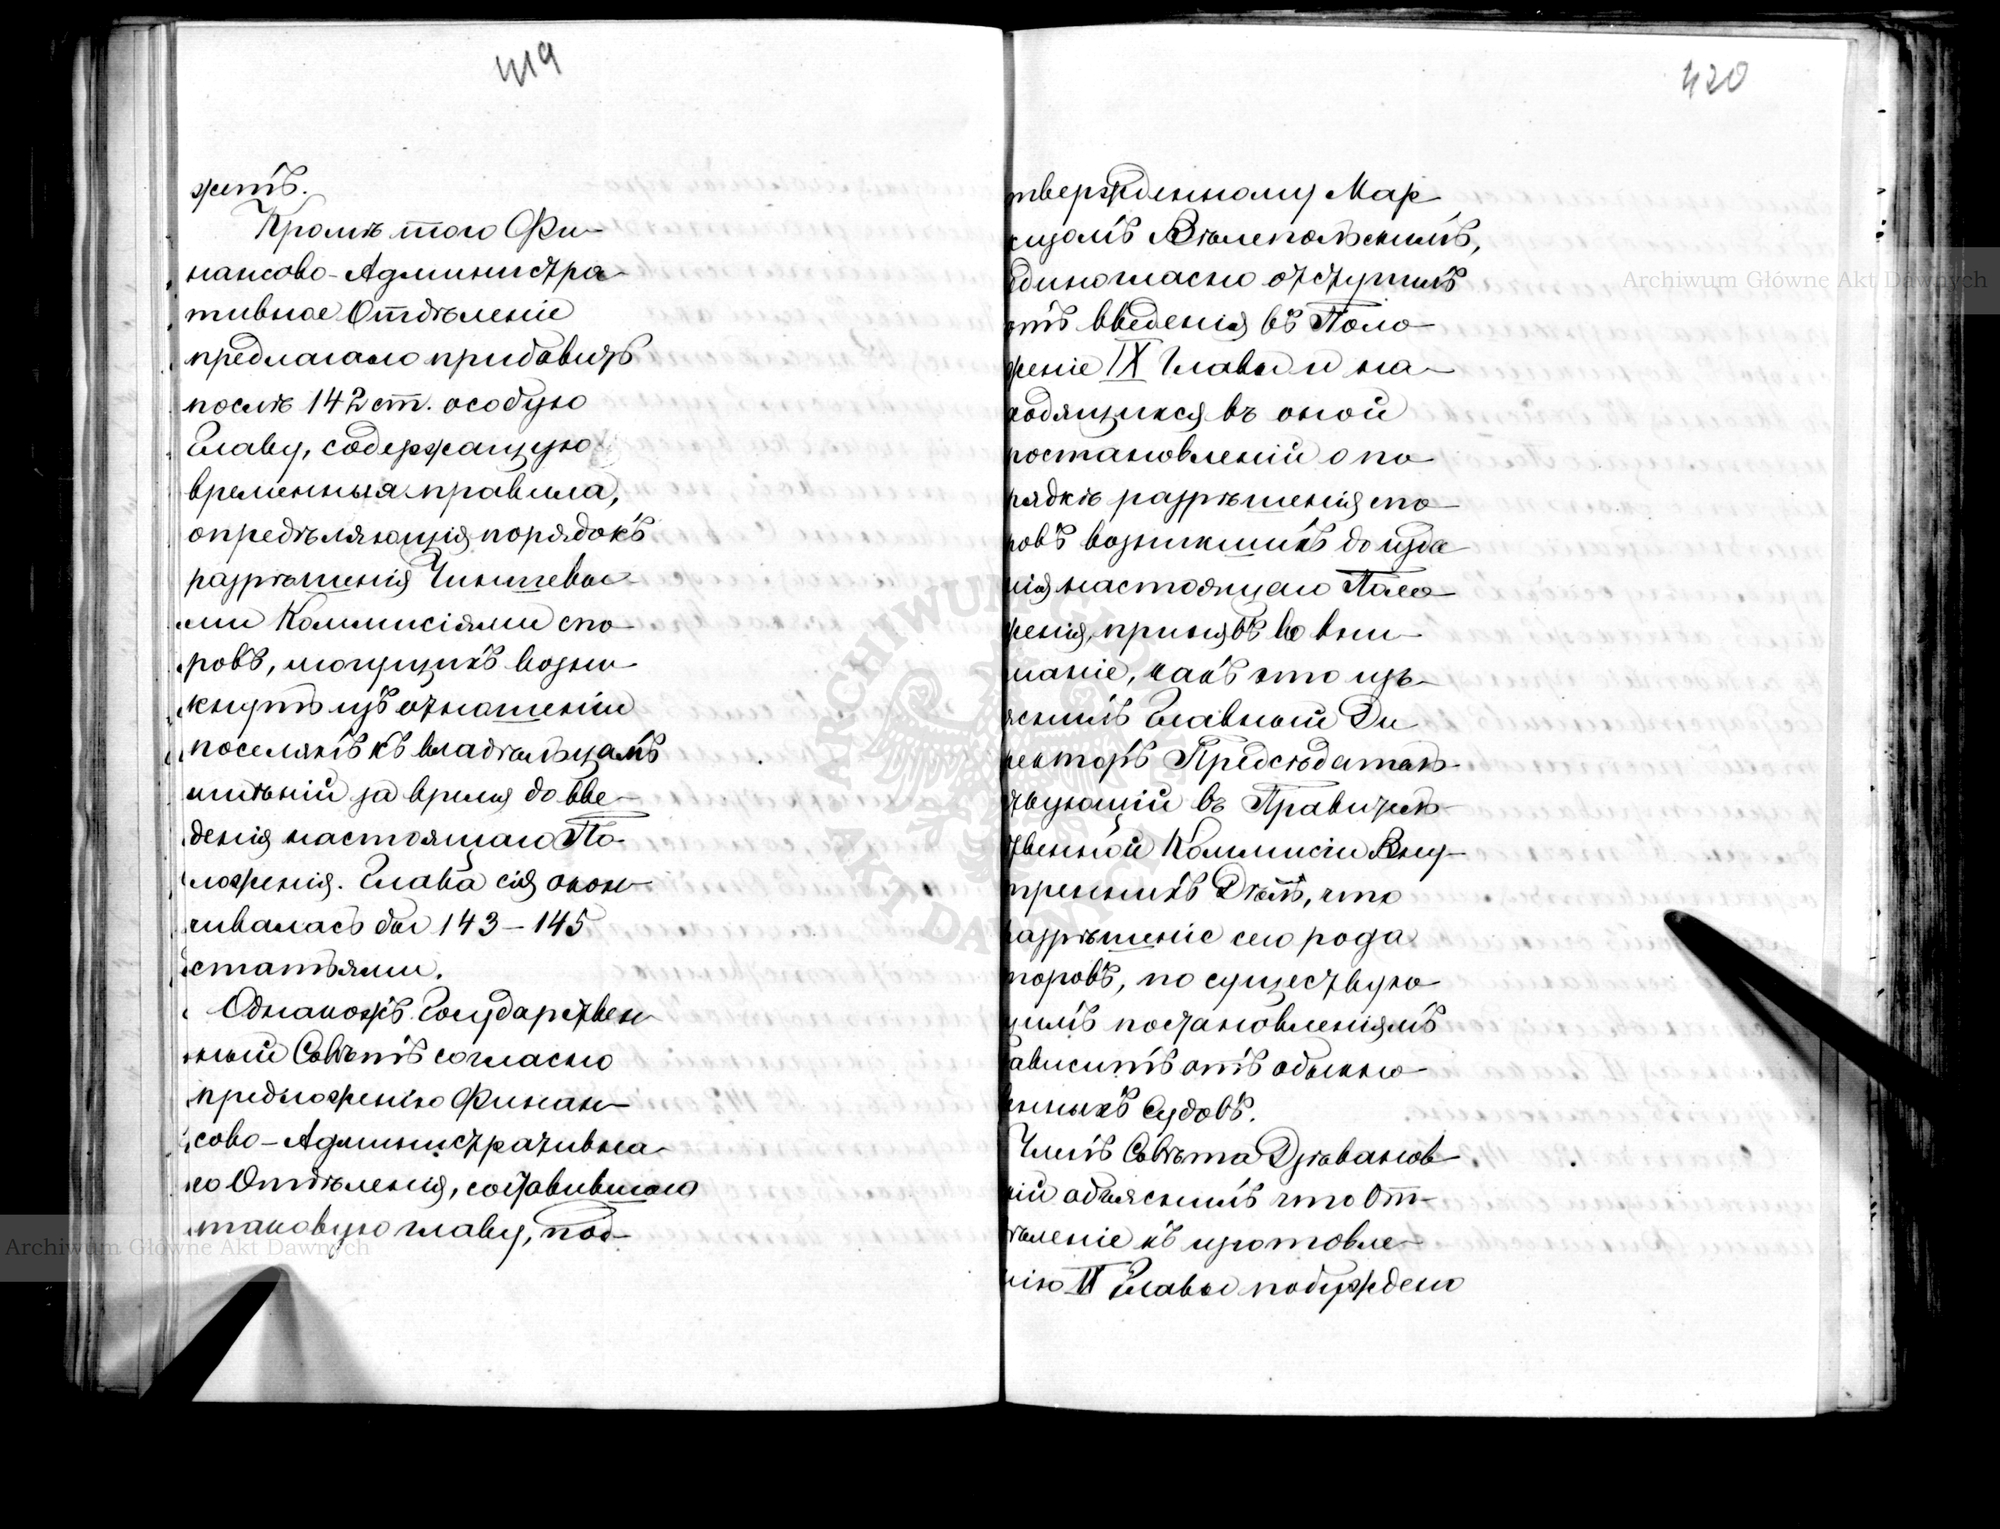 419
жетъ.
Кромѣ того Фи-
нансово-Администра-
тивное Отдѣленіе
предлагало прибавить
послѣ 142 ст. особую
Главу, содержащую
временныя правила,
опредѣляющія порядокъ
разрѣшенія Чиншевы-
ми Коммисіями спо-
ровъ, могущихъ возни-
кнуть изъ отношеній
поселянъ къ владѣльцамъ
имѣній за время до вве-
денія настоящаго По-
ложенія. Глава сія окан-
чивалась бы 143-145
статьями.
Однакожъ Государствен-
ный Совѣтъ согласно
предложенію Финан-
сово-Административна-
го Отдѣленія, составившаго
таковую главу, под-
420
твержденному Мар-
кизомъ Вѣлепольскимъ,
единогласно отступилъ
отъ введенія въ Поло-
женіе IX Главы и на-
ходящихся въ оной
постановленій о по-
рядкѣ разрѣшенія спо-
ровъ возникшихъ до изда-
нія настоящаго Поло-
женія, принявъ во вни-
маніе, какъ это изъ-
яснилъ Главный Ди-
ректоръ Предсѣдатель-
ствующій въ Правитель-
ственной Коммисіи Вну-
треннихъ Дѣлъ, что
разрѣшеніе сего рода
споровъ, по существую-
щимъ постановленіямъ
зависитъ отъ обыкно-
венныхъ Судовъ.
Членъ Совѣта Дзѣванов-
скій объяснилъ что От-
дѣленіе къ изготовле-
нію IX Главы побуждено
Archiwum Główne Akt Dawnych
Archiwum Główne Akt Dawnych
ARCHIWUM GŁÓWNE AKT DAWNYCH